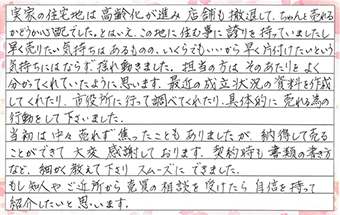 実家の住宅地は高齢化が進み店舗も撤退して、ちゃんと売れる
かどうか心配でした。とはいえ、この地に住む事に誇りを持っていましたし
早く売りたい気持ちはあるものの、いくらでも・・・から早く片付けたいという
気持ちにはならず揺れ動きました。担当の方は そのあたりをよく
分かってくれていたように思います。最近の成立状況の資料を作成
してくれたり、市役所に行って調べてくれたり、具体的に売れる為の
行動をして下さいました。
当初は中々売れず焦ったこともありましたが、納得して売る
ことができて大変感謝しております。契約時も書類の書き方
など、細かく教えて下さりスムーズにできました。
もし知人やご近所から売買の相談を受けたら自信を持って
紹介したいと思います。